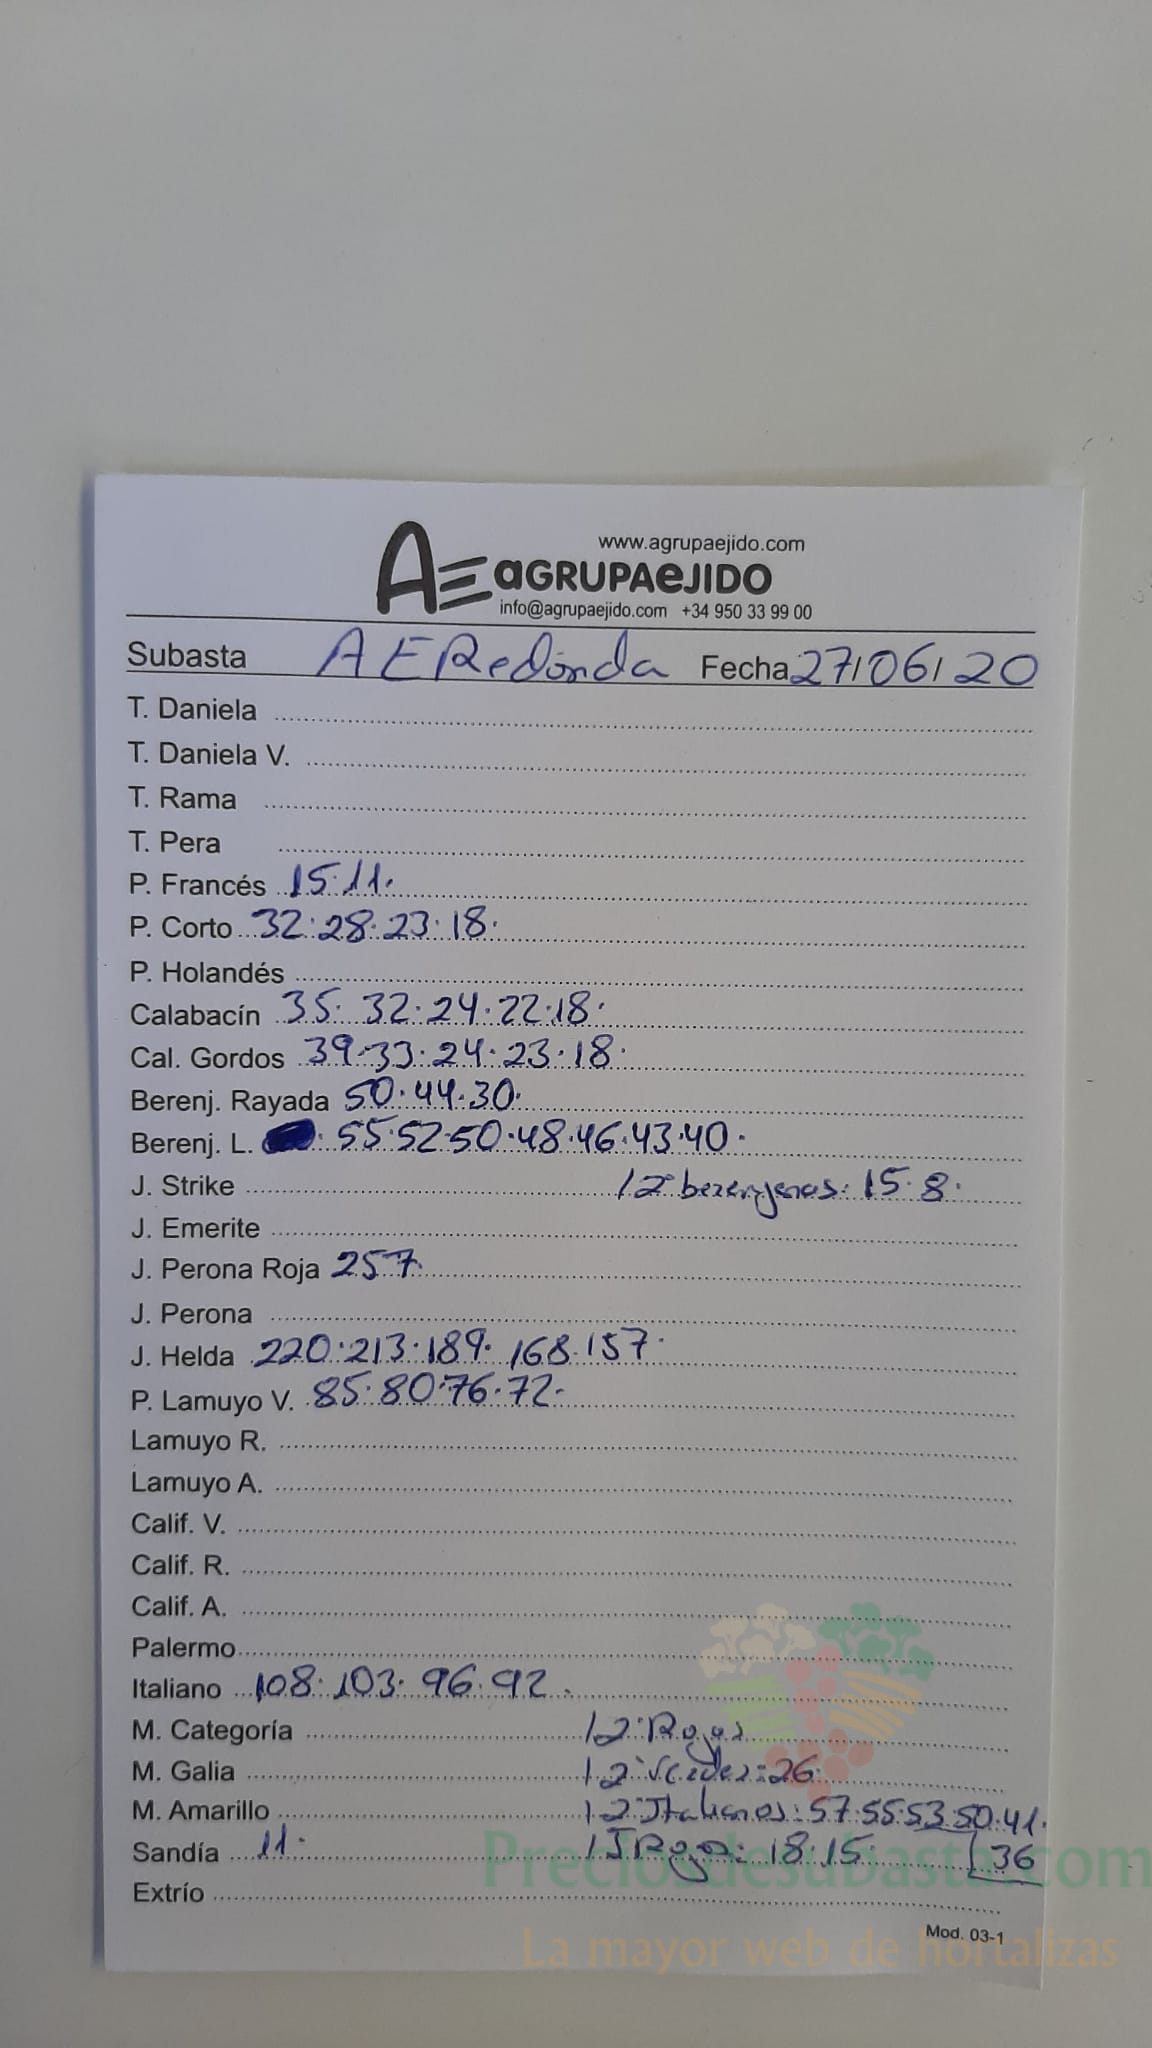 www.agrupaejido.com
AE aGRUPAeJIDO
info@agrupaejido.com +34 950 33 99 00
Subasta AERedonda Fecha 27/06/20
T. Daniela
T. Daniela V.
T. Rama
T. Pera
P. Francés 15·11·
P. Corto 32·28·23·18·
P. Holandés
Calabacín 35·32·24·22·18·
Cal. Gordos 39·33·24·23·18·
Berenj. Rayada 50·44·30·
Berenj. L. 55·52·50·48·46·43·40·
J. Strike 12ª berenjenas: 15·8·
J. Emerite
J. Perona Roja 257·
J. Perona
J. Helda 220·213·189·168·157·
P. Lamuyo V. 85·80·76·72·
Lamuyo R.
Lamuyo A.
Calif. V.
Calif. R.
Calif. A.
Palermo
Italiano 108·103·96·92·
M. Categoría 12ª Rojos
M. Galia 12ª Verdes: 26·
M. Amarillo 12ª Italianos: 57·55·53·50·41·
Sandía 11· Rojos: 18·15· 36
Extrío
Mod. 03-1
Preciosdesubasta.com
La mayor web de hortalizas